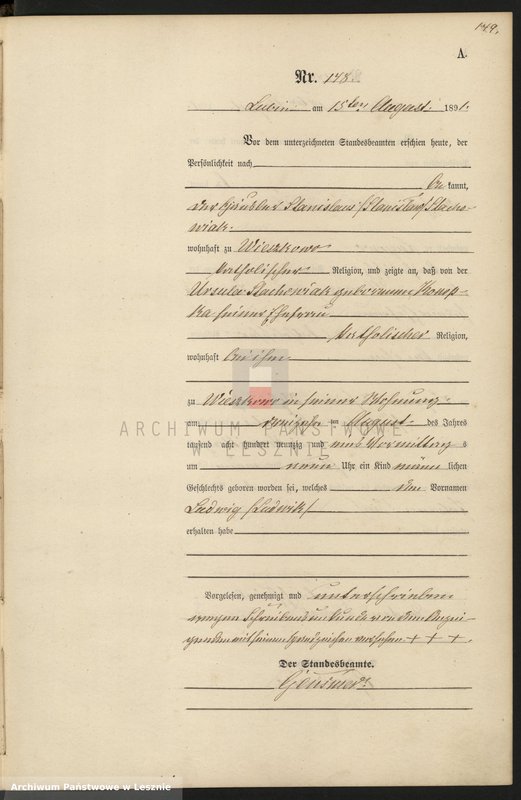 149.
A.
Nr. 148.
Lubin am 15ten August 1891.
Vor dem unterzeichneten Standesbeamten erschien heute, der
Persönlichkeit nach
be kannt,
der Häusler Stanislaus /Stanisław/ Stacho-
wiak
wohnhaft zu Wieszkowo
katholischer Religion, und zeigte an, daß von der
Ursula Stachowiak geborenen Konop-
ka seiner Ehefrau
katholischer Religion,
wohnhaft bei ihm
zu Wieszkowo in seiner Wohnung
am dreizehn ten August des Jahres
tausend acht hundert neunzig und eins Vormittag s
um neun Uhr ein Kind männ lichen
Geschlechts geboren worden sei, welches den Vornamen
Ludwig /Ludwik/
erhalten habe
Vorgelesen, genehmigt und unterschrieben
wegen Schreibensunkunde von dem Anzei-
genden mit seinem Handzeichen versehen + + + .
Der Standesbeamte.
ARCHIWUM PAŃSTWOWE
W LESZNIE
Archiwum Państwowe w Lesznie